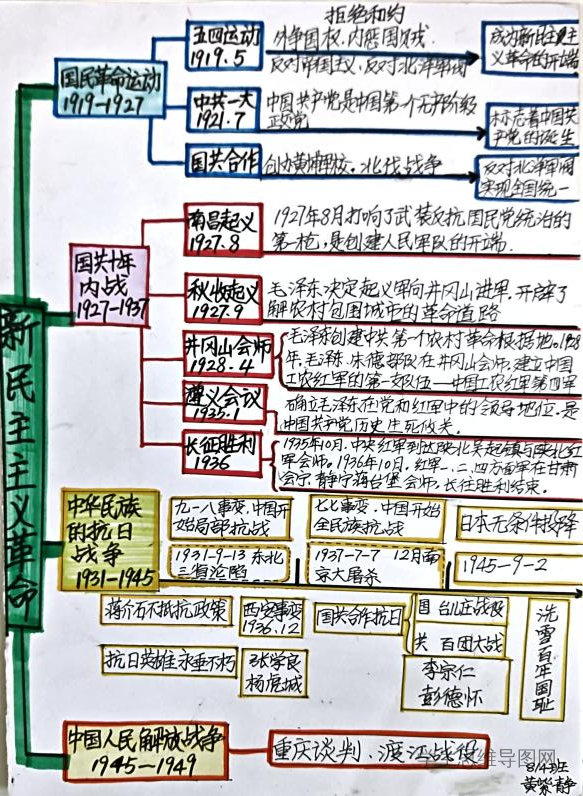 新民主主义革命
国民革命运动
1919-1927
五四运动
1919.5
拒绝和约
外争国权,内惩国贼.
反对帝国主义,反对北洋军阀
成为新民主主
义革命的开端
中共一大
1921.7
中国共产党是中国第一个无产阶级
政党
标志着中国共
产党的诞生
国共合作
创办黄埔军校。北伐战争
反对北洋军阀
实现全国统一
国共十年
内战
1927-1937
南昌起义
1927.8
1927年8月打响了武装反抗国民党统治的
第一枪,是创建人民军队的开端.
秋收起义
1927.9
毛泽东决定起义军向井冈山进军.开辟了
农村包围城市的革命道路
井冈山会师
1928.4
毛泽东创建中共第一个农村革命根据地。1928
年,毛泽东、朱德部队在井冈山会师,建立中国
工农红军的第一支队伍——中国工农红军第四军
遵义会议
1935.1
确立毛泽东在党和红军中的领导地位,是
中国共产党历史生死攸关.
长征胜利
1936
1935年10月,中央红军到达陕北吴起镇与陕北红
军会师。1936年10月,红军一、二、四方面军在甘肃
会宁、静宁将台堡会师,长征胜利结束.
中华民族
的抗日
战争
1931-1945
九一八事变,中国开
始局部抗战
七七事变,中国开始
全民族抗战
日本无条件投降
1931-9-13 东北
三省沦陷
1937-7-7 12月南
京大屠杀
1945-9-2
蒋介石不抵抗政策
西安事变
1936.12
国共合作抗日
国 台儿庄战役
共 百团大战
洗雪百年国耻
抗日英雄永垂不朽
张学良
杨虎城
李宗仁
彭德怀
中国人民解放战争
1945-1949
重庆谈判、渡江战役
思维导图网
8/4班
黄紫静